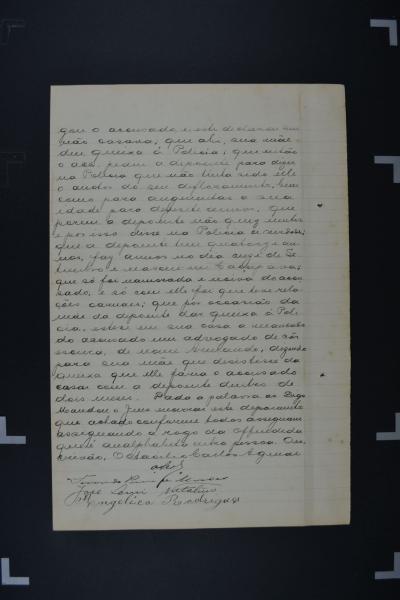 gou o accusado, e este declarou que
não casava; que ahi, sua mãe
deu queixa á Policia; que então
o acc. pediu a depoente para dizer
na Policia que não tinha sido elle
o autor do seu defloramento, bem
como para augmentar a sua
idade para dezesete annos, que
porem a depoente não quiz mentir
e por isso disse na Policia a verdade;
que a depoente tem quatorze an-
nos, faz annos no dia onze de Se-
tembro e nasceu em
que só foi namorada e noiva do accu-
sado, e só com elle foi que teve rela-
ções carnaes; que por occasião da
mãe da depoente dar queixa á Poli-
cia, esteve em sua casa a mandado
do accusado um advogado de
de nome dizendo
para sua mãe que desistisse da
queixa que elle faria o accusado
casar com a depoente dentro de
dois mezes. Dada a palavra ao
Mandou o Juiz encerrar este depoimento
que achado conforme todos assignam
assignando a rogo da offendida
que é analphabeta esta pessoa. Eu,
escrivão, Carlos
José Luiz
Angelica Rodrigues